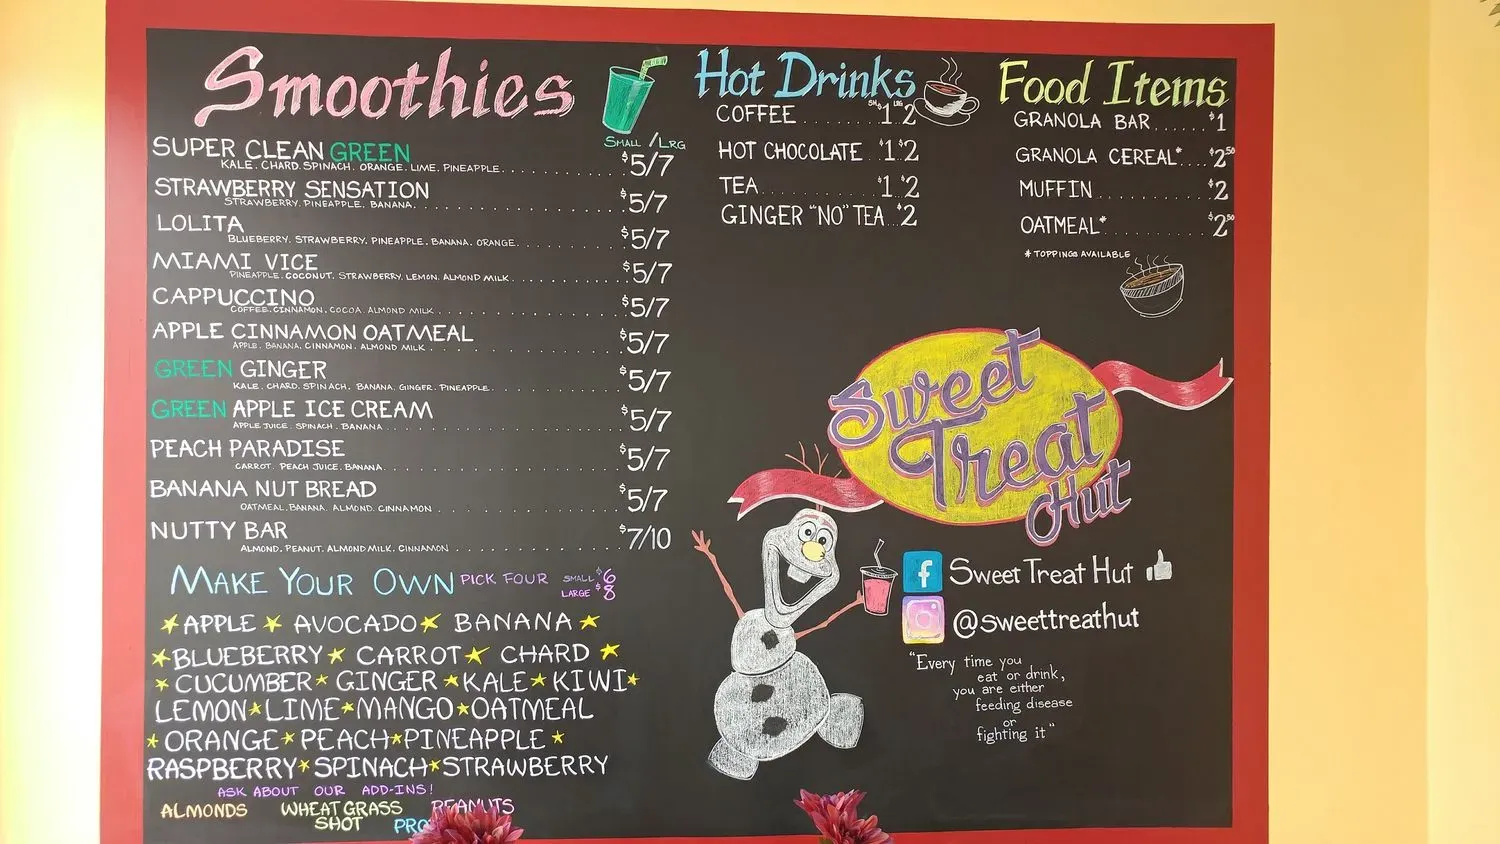 Smoothies
SMALL / LRG
SUPER CLEAN GREEN
KALE. CHARD. SPINACH. ORANGE. LIME. PINEAPPLE. $5/7
STRAWBERRY SENSATION
STRAWBERRY. PINEAPPLE. BANANA. $5/7
LOLITA
BLUEBERRY. STRAWBERRY. PINEAPPLE. BANANA. ORANGE. $5/7
MIAMI VICE
PINEAPPLE. COCONUT. STRAWBERRY. LEMON. ALMOND MILK $5/7
CAPPUCCINO
COFFEE. CINNAMON. COCOA. ALMOND MILK $5/7
APPLE CINNAMON OATMEAL
APPLE. BANANA. CINNAMON. ALMOND MILK $5/7
GREEN GINGER
KALE. CHARD. SPINACH. BANANA. GINGER. PINEAPPLE $5/7
GREEN APPLE ICE CREAM
APPLE JUICE. SPINACH. BANANA $5/7
PEACH PARADISE
CARROT. PEACH JUICE. BANANA $5/7
BANANA NUT BREAD
OATMEAL. BANANA. ALMOND. CINNAMON $5/7
NUTTY BAR
ALMOND. PEANUT. ALMOND MILK. CINNAMON $7/10
MAKE YOUR OWN PICK FOUR SMALL $6
LARGE $8
APPLE AVOCADO BANANA
BLUEBERRY CARROT CHARD
CUCUMBER GINGER KALE KIWI
LEMON LIME MANGO OATMEAL
ORANGE PEACH PINEAPPLE
RASPBERRY SPINACH STRAWBERRY
ASK ABOUT OUR ADD-INS!
ALMONDS WHEATGRASS PEANUTS
SHOT
Hot Drinks
SM LRG
COFFEE $1 $2
HOT CHOCOLATE $1 $2
TEA $1 $2
GINGER "NO" TEA $2
Food Items
GRANOLA BAR $1
GRANOLA CEREAL* $2.50
MUFFIN $2
OATMEAL* $2.50
* TOPPINGS AVAILABLE
Sweet
Treat
Hut
f Sweet Treat Hut
@sweettreathut
"Every time you
eat or drink,
you are either
feeding disease
or
fighting it"